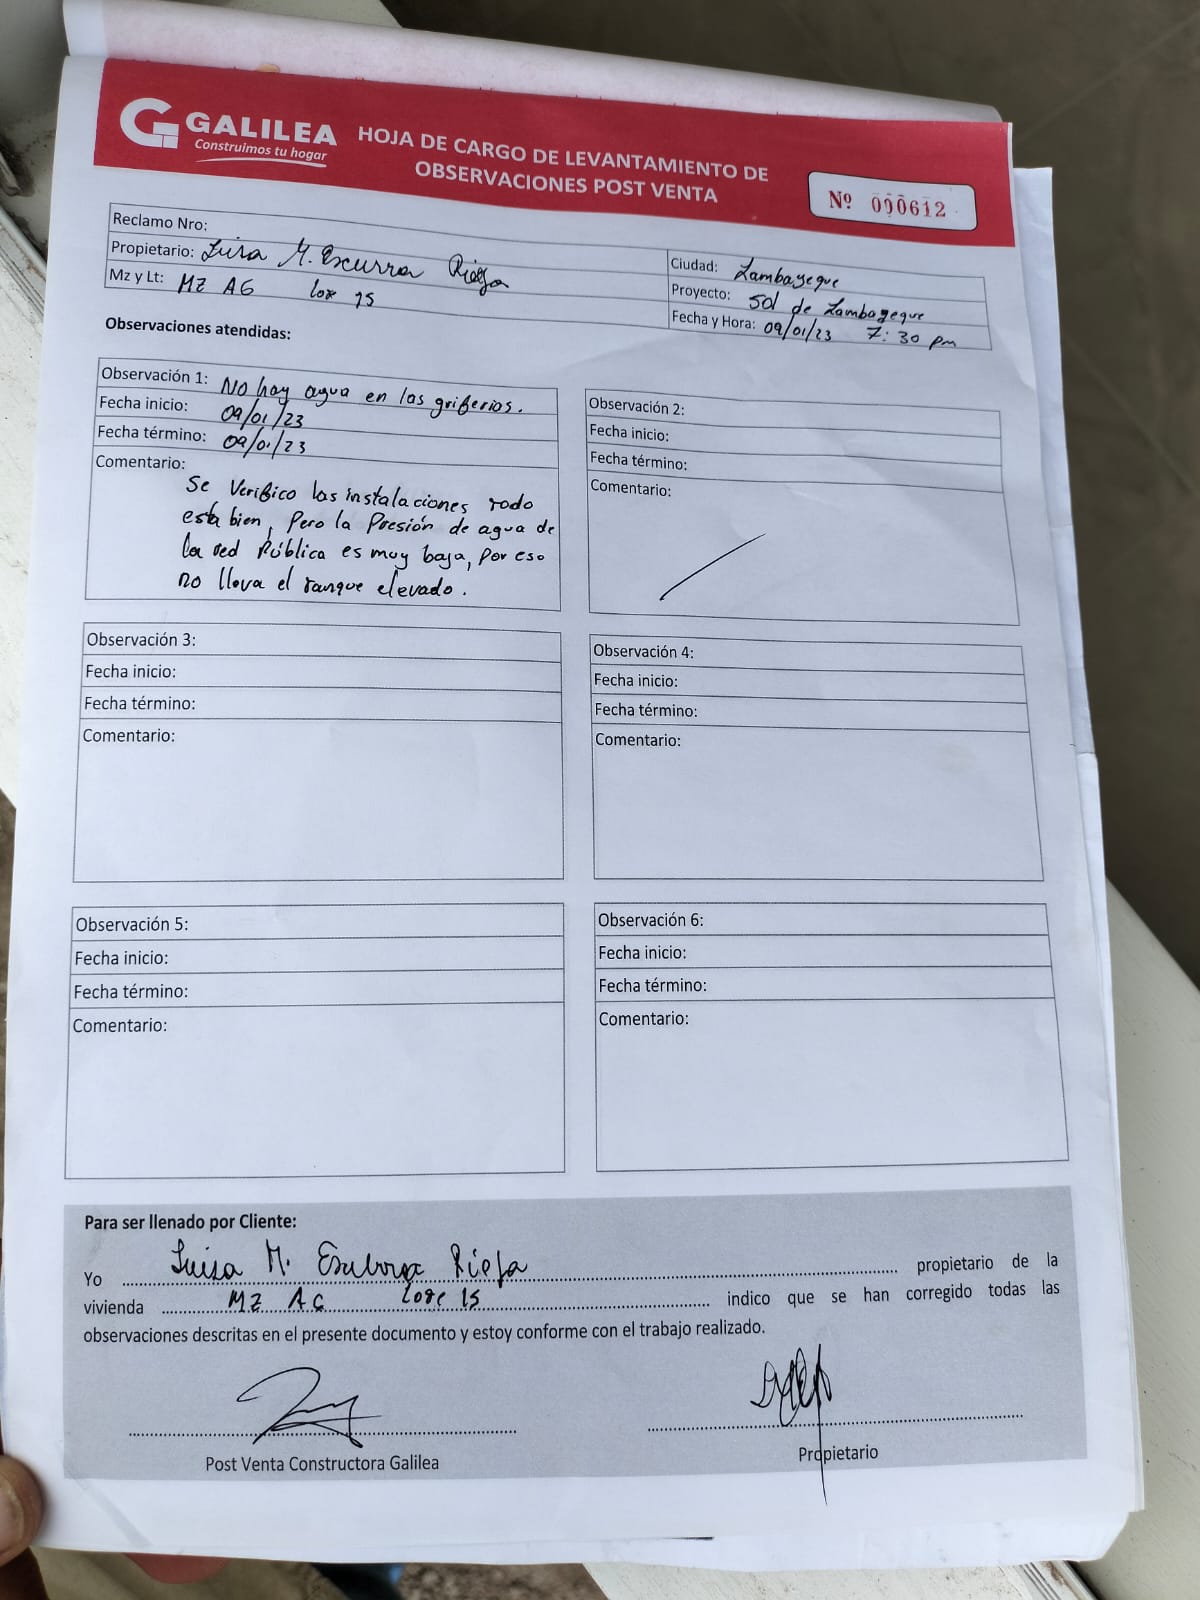 GALILEA
Construimos tu hogar
HOJA DE CARGO DE LEVANTAMIENTO DE
OBSERVACIONES POST VENTA
Nº 000612
Reclamo Nro:
Propietario: Luisa M. Escurra Rioja
Mz y Lt: MZ AG lote 15
Ciudad: Lambayeque
Proyecto: Sol de Lambayeque
Fecha y Hora: 09/01/23 7:30 pm
Observaciones atendidas:
Observación 1: No hay agua en las griferias.
Fecha inicio: 09/01/23
Fecha término: 09/01/23
Comentario:
Se Verifico las instalaciones todo
está bien, Pero la Presión de agua de
la red Pública es muy baja, Por eso
no lleva el tanque elevado.
Observación 2:
Fecha inicio:
Fecha término:
Comentario:
Observación 3:
Fecha inicio:
Fecha término:
Comentario:
Observación 4:
Fecha inicio:
Fecha término:
Comentario:
Observación 5:
Fecha inicio:
Fecha término:
Comentario:
Observación 6:
Fecha inicio:
Fecha término:
Comentario:
Para ser llenado por Cliente:
Yo Luisa M. Rioja propietario de la
vivienda MZ AG lote 15 indico que se han corregido todas las
observaciones descritas en el presente documento y estoy conforme con el trabajo realizado.
Post Venta Constructora Galilea
Propietario